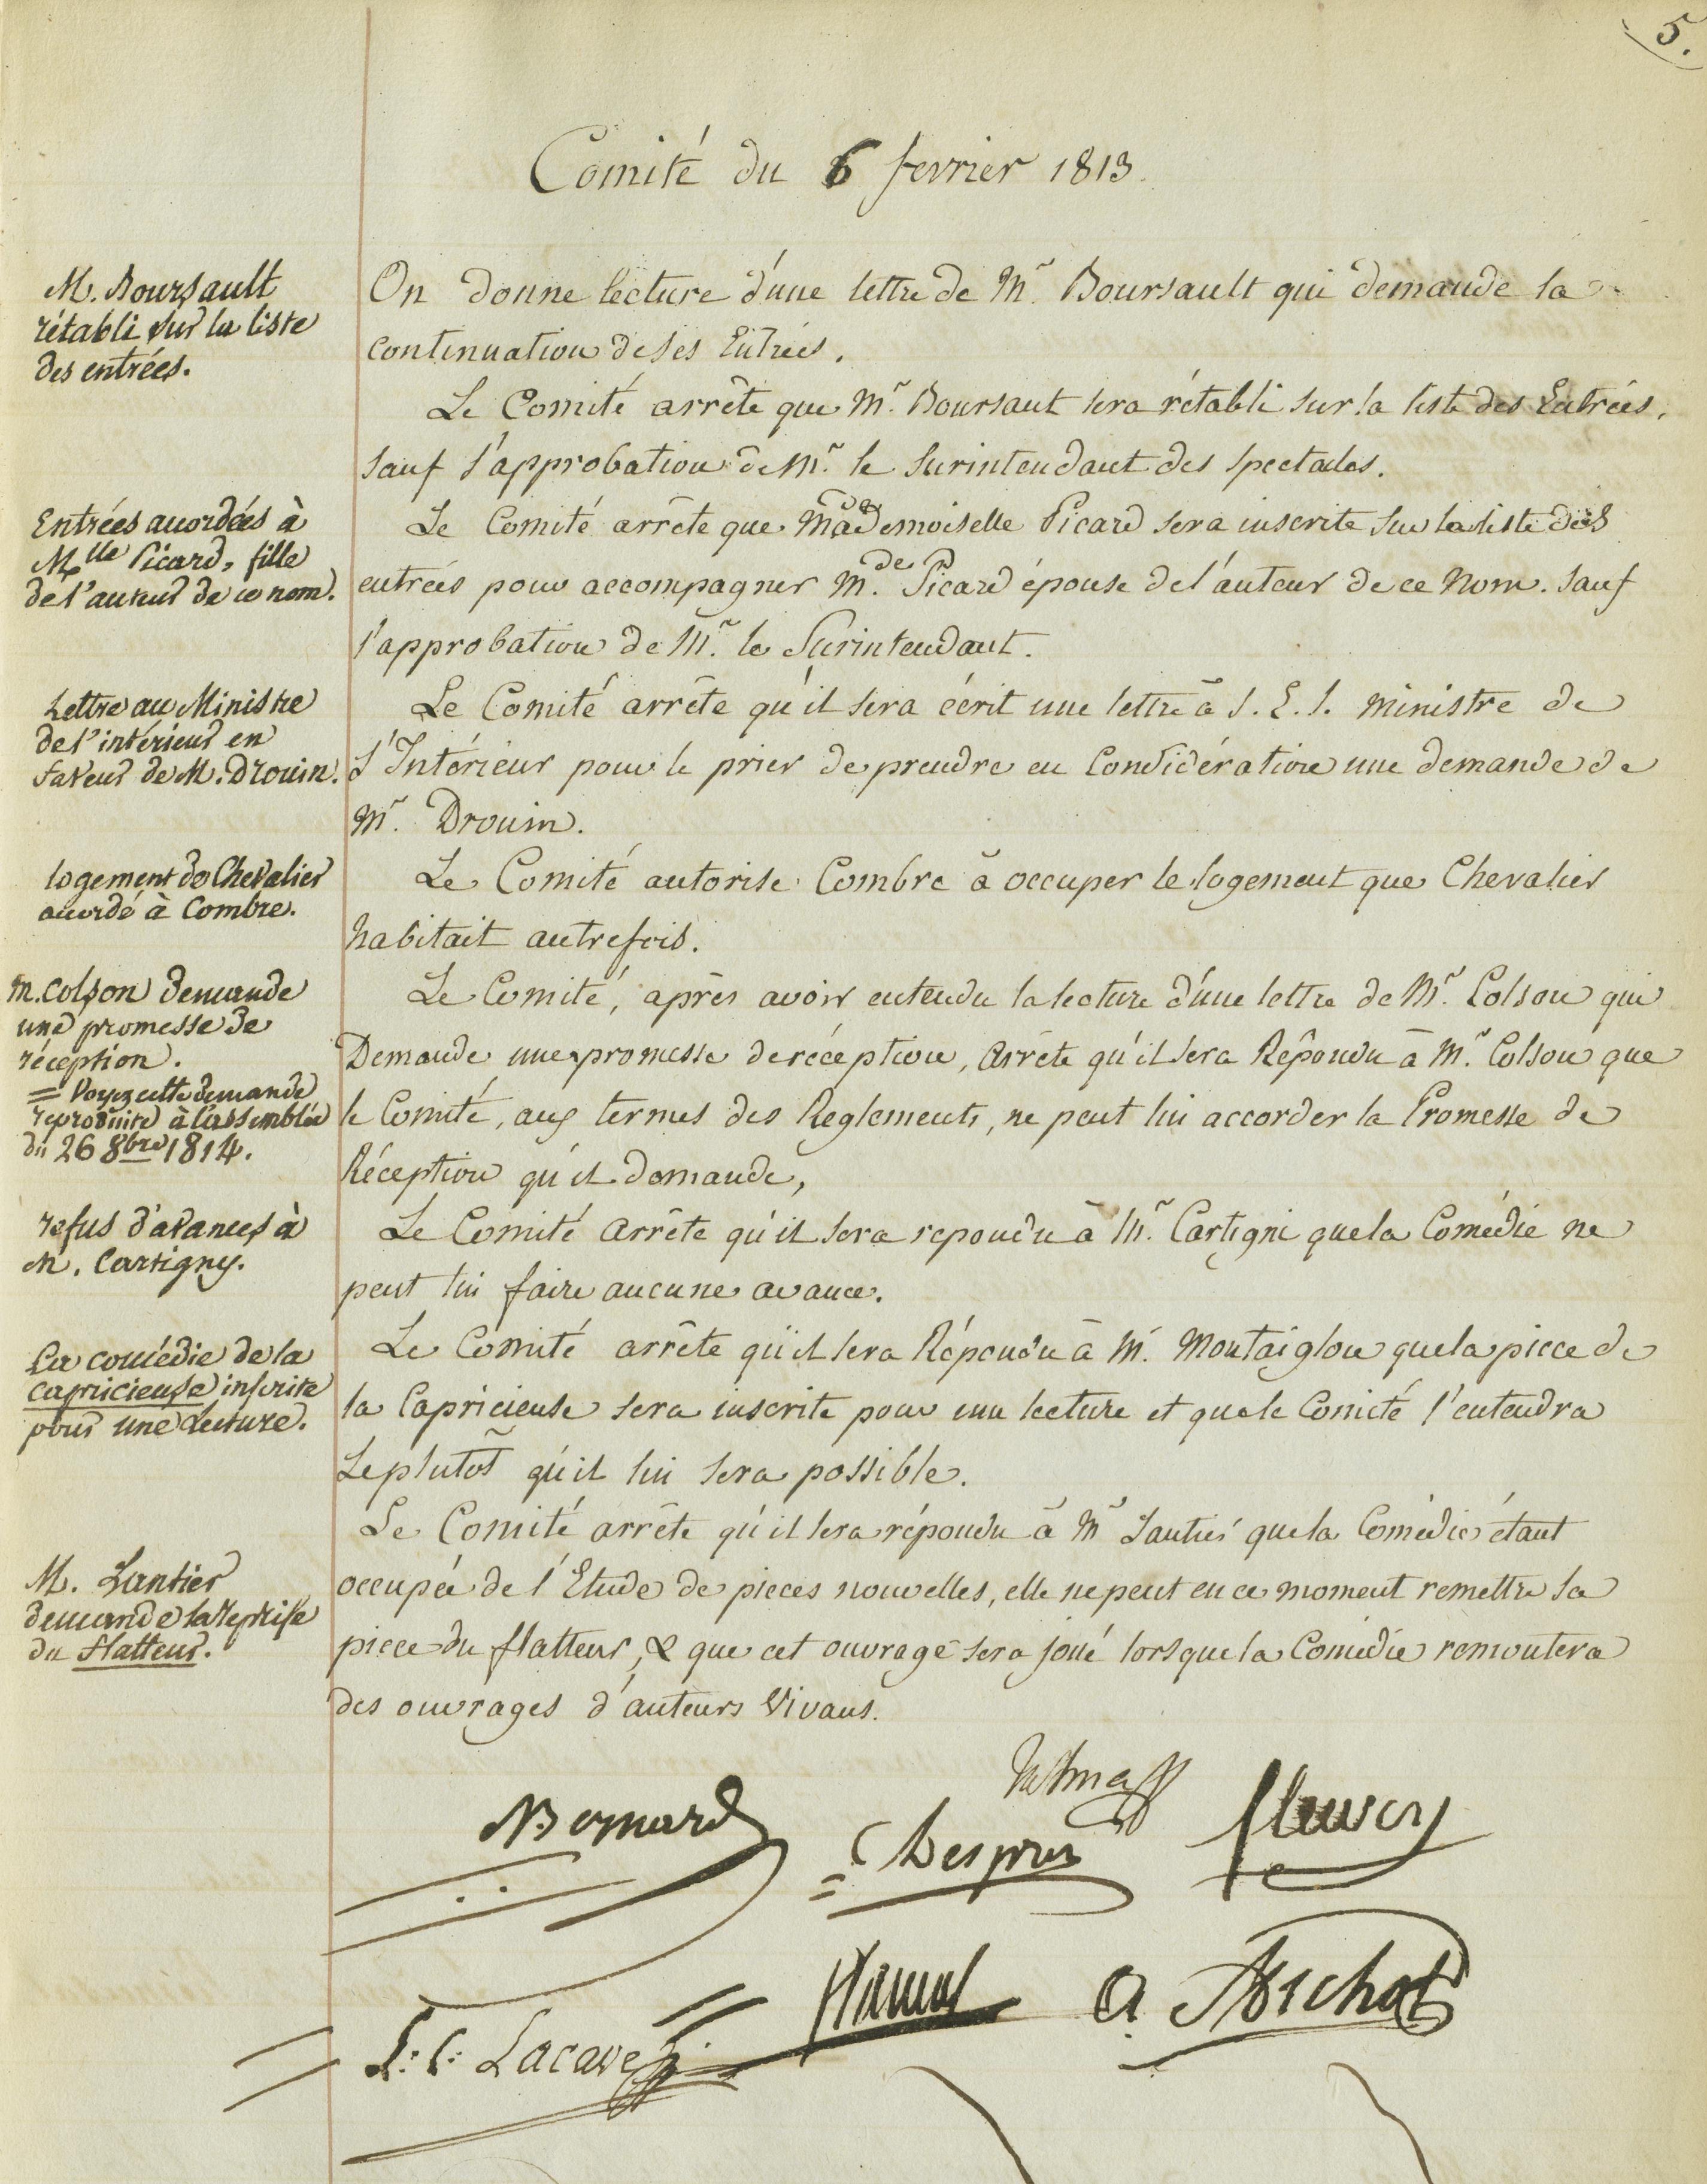 5.
Comité du 6 fevrier 1813.
M. Boursault
rétabli sur la liste
des entrées.
On donne lecture d'une lettre de Mr. Boursault qui demande la
continuation de ses Entrées.
Le Comité arrête que Mr. Boursaut sera rétabli sur la liste des Entrées,
sauf l'approbation de Mr. le Surintendant des spectacles.
Entrées accordées à
Mlle Picard, fille
de l'auteur de ce nom.
Le Comité arrête que Mademoiselle Picard sera inscrite sur la liste des
entrées pour accompagner Mde. Picard épouse de l'auteur de ce Nom. Sauf
l'approbation de Mr. le Surintendant.
Lettre au Ministre
de l'intérieur en
faveur de M. Drouin.
Le Comité arrête qu'il sera écrit une lettre à S. E. l. Ministre de
l'Intérieur pour le prier de prendre en Considération une demande de
Mr. Drouin.
logement de Chevalier
accordé à Combre.
Le Comité autorise Combre à occuper le logement que Chevalier
habitait autrefois.
M. Colson demande
une promesse de
réception.
= Voyez cette demande
reproduite à l'assemblée
du 26 8bre 1814.
Le Comité, après avoir entendu la lecture d'une lettre de Mr. Colson qui
Demande une promesse de réception, Arrête qu'il sera Répondu à Mr. Colson que
le Comité, aux termes des Reglements, ne peut lui accorder la Promesse de
Réception qu'il demande,
refus d'avances à
M. Cartigny.
Le Comité Arrête qu'il sera repondu à Mr. Cartigni que la Comédie ne
peut lui faire aucune avance.
La comédie de la
capricieuse inscrite
pour une Lecture.
Le Comité arrête qu'il sera Répondu à M. Montaiglon que la piece de
la Capricieuse sera inscrite pour une lecture et que le Comité l'entendra
Le plutôt qu'il lui sera possible.
M. Lantier
demande la reprise
du Flatteur.
Le Comité arrête qu'il sera répondu à Mr Lantier que la Comédie étant
occupée de l'Etude de pieces nouvelles, elle ne peut en ce moment remettre sa
piece du flatteur, & que cet ouvrage sera joué lorsque la Comédie remontera
des ouvrages d'auteurs Vivans.
Talma
Bernard
Desprez
fleury
A. Michot
L. C. Lacave